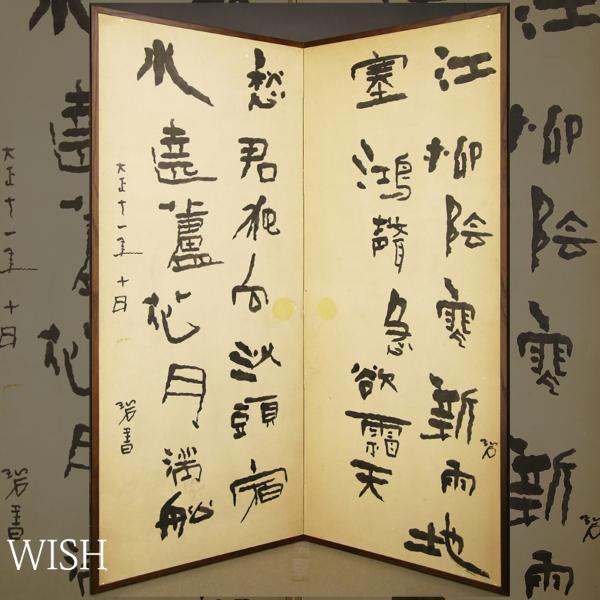 江柳陰寒新雨地
碧
塞鴻聲急欲霜天
愁君独向沙頭宿
水遶蘆花月満船
大正十一年十月
碧書
WISH